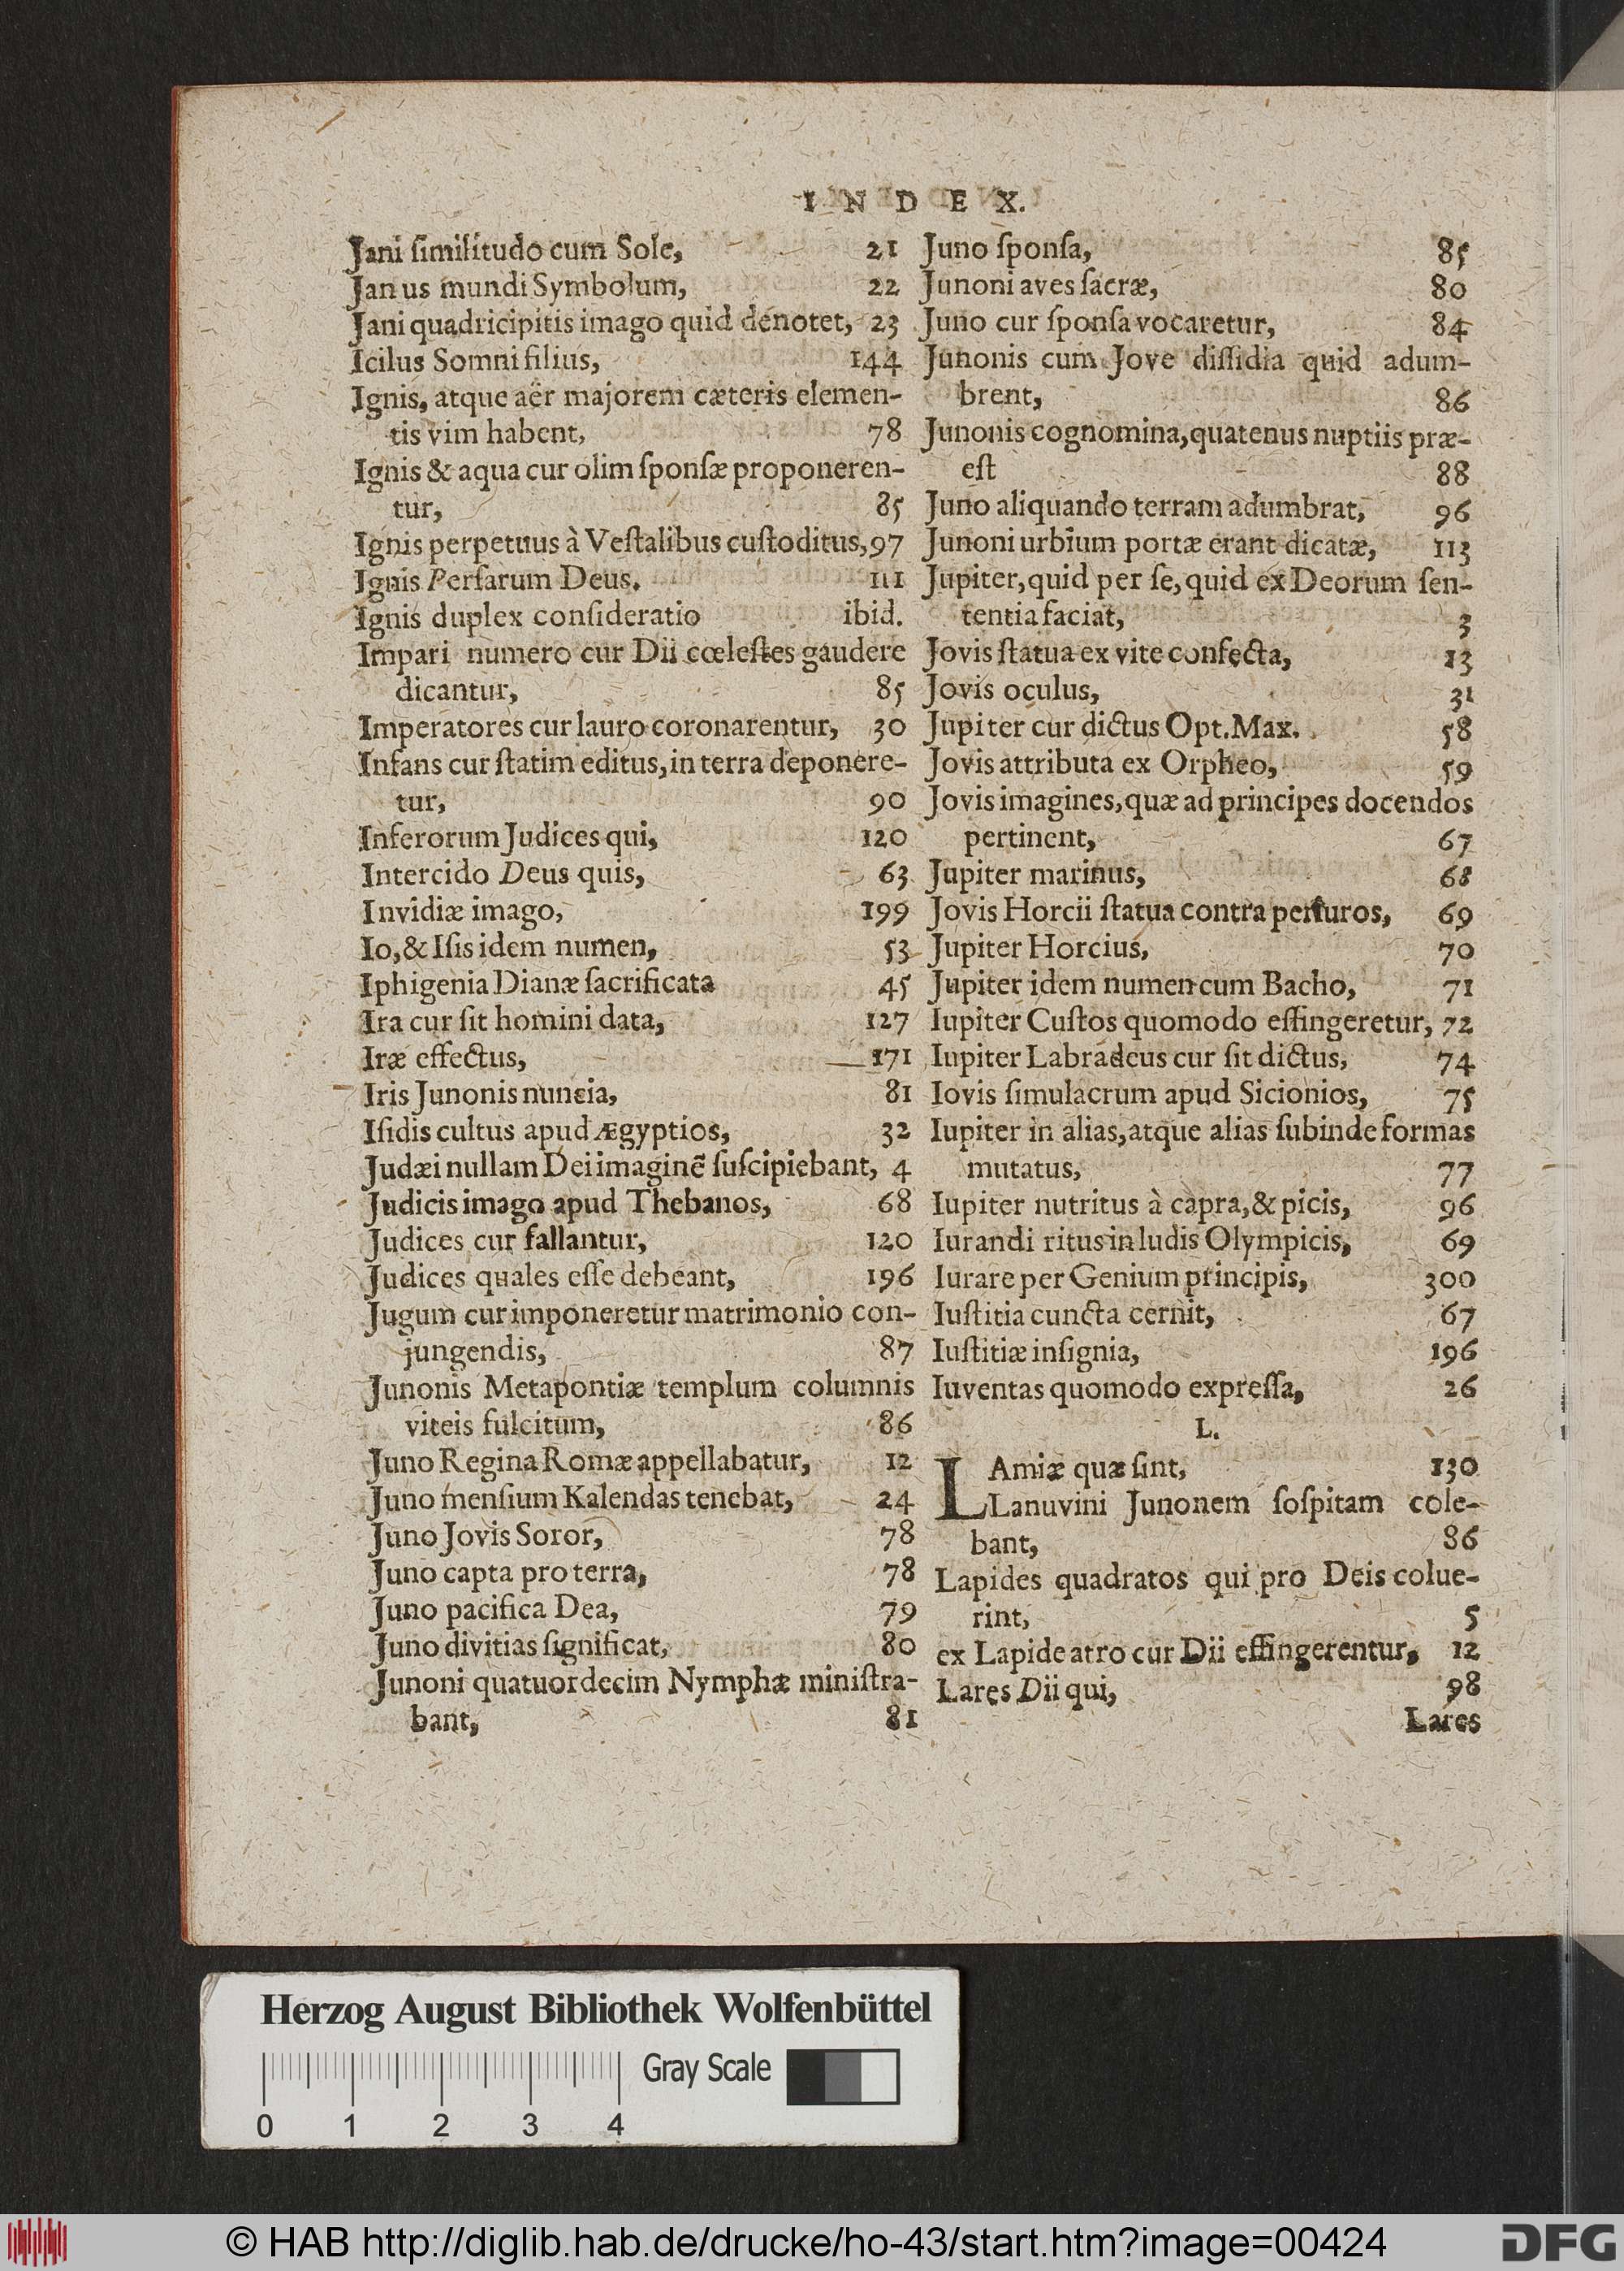 I N D E X.
Jani ſimilitudo cum Sole, 21
Janus mundi Symbolum, 22
Jani quadricipitis imago quid denotet, 23
Icilus Somni filius, 144
Ignis, atque aër majorem cæteris elemen-
tis vim habent, 78
Ignis & aqua cur olim ſponſæ proponeren-
tur, 85
Ignis perpetuus à Veſtalibus cuſtoditus, 97
Ignis Perſarum Deus. 111
Ignis duplex conſideratio ibid.
Impari numero cur Dii cœleſtes gaudere
dicantur, 85
Imperatores cur lauro coronarentur, 30
Infans cur ſtatim editus, in terra deponere-
tur, 90
Inferorum Judices qui, 120
Intercido Deus quis, 63
Invidiæ imago, 199
Io, & Iſis idem numen, 53
Iphigenia Dianæ ſacrificata 45
Ira cur ſit homini data, 127
Iræ effectus, 171
Iris Junonis nuncia, 81
Iſidis cultus apud Ægyptios, 32
Judæi nullam Dei imaginẽ ſuſcipiebant, 4
Judicis imago apud Thebanos, 68
Judices cur fallantur, 120
Judices quales eſſe debeant, 196
Jugum cur imponeretur matrimonio con-
jungendis, 87
Junonis Metapontiæ templum columnis
viteis fulcitum, 86
Juno Regina Romæ appellabatur, 12
Juno menſium Kalendas tenebat, 24
Juno Jovis Soror, 78
Juno capta pro terra, 78
Juno pacifica Dea, 79
Juno divitias ſignificat, 80
Junoni quatuordecim Nymphæ miniſtra-
bant, 81
Juno ſponſa, 85
Junoni aves ſacræ, 80
Juno cur ſponſa vocaretur, 84
Junonis cum Jove diſſidia quid adum-
brent, 86
Junonis cognomina, quatenus nuptiis præ-
eſt 88
Juno aliquando terram adumbrat, 96
Junoni urbium portæ erant dicatæ, 113
Jupiter, quid per ſe, quid ex Deorum ſen-
tentia faciat, 3
Jovis ſtatua ex vite confecta, 13
Jovis oculus, 31
Jupiter cur dictus Opt. Max. 58
Jovis attributa ex Orpheo, 59
Jovis imagines, quæ ad principes docendos
pertinent, 67
Jupiter marinus, 68
Jovis Horcii ſtatua contra perſuros, 69
Jupiter Horcius, 70
Jupiter idem numen cum Bacho, 71
Iupiter Cuſtos quomodo effingeretur, 72
Iupiter Labradeus cur ſit dictus, 74
Iovis ſimulacrum apud Sicionios, 75
Iupiter in alias, atque alias ſubinde formas
mutatus, 77
Iupiter nutritus à capra, & picis, 96
Iurandi ritus in ludis Olympicis, 69
Iurare per Genium principis, 300
Iuſtitia cuncta cernit, 67
Iuſtitiæ inſignia, 196
Iuventas quomodo expreſſa, 26
L.
LAmiæ quæ ſint, 130
Lanuvini Junonem ſoſpitam cole-
bant, 86
Lapides quadratos qui pro Deis colue-
rint, 5
ex Lapide atro cur Dii effingerentur, 12
Lares Dii qui, 98
Lares
Herzog August Bibliothek Wolfenbüttel
Gray Scale
0 1 2 3 4
© HAB http://diglib.hab.de/drucke/ho-43/start.htm?image=00424
DFG